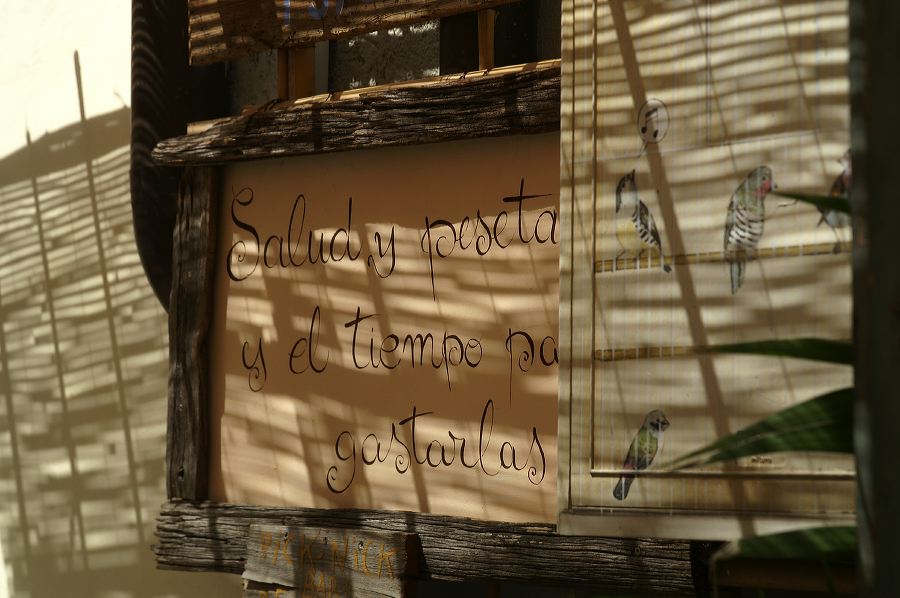 Salud y peseta
y el tiempo pa
gastarlas
PICK NICK